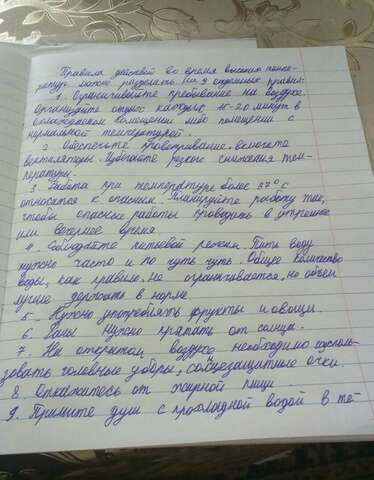 Правила действий во время высоких темпе-
ратур можно разделить на 9 отдельных правил:
1. Ограничивайте пребывание на воздухе.
Организуйте отдых каждые 15-20 минут в
охлаждаемом помещении либо помещении с
нормальной температурой.
2. Обеспечьте проветривание, включите
вентиляторы. Избегайте резкого снижения тем-
пературы.
3. Работа при температуре более 37°С
относится к опасным. Планируйте работу так,
чтобы опасные работы проводить в утреннее
или вечернее время.
4. Соблюдайте петьевой режим. Пить воду
нужно часто и по чуть чуть. Общее количество
воды, как правило, не ограничивается, но объем
лучше держать в норме.
5. Нужно употреблять фрукты и овощи.
6. Глаза нужно прятать от солнца.
7. На открытом воздухе необходимо исполь-
зовать головные уборы, солнцезащитные очки.
8. Откажитесь от жирной пищи.
9. Примите душ с прохладной водой в те-